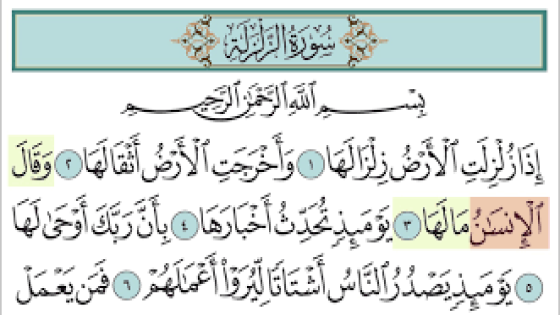 سُورَةُ الزَّلْزَلَةِ
بِسْمِ اللَّهِ الرَّحْمَٰنِ الرَّحِيمِ
إِذَا زُلْزِلَتِ الْأَرْضُ زِلْزَالَهَا ١ وَأَخْرَجَتِ الْأَرْضُ أَثْقَالَهَا ٢ وَقَالَ
الْإِنسَٰنُ مَا لَهَا ٣ يَوْمَئِذٍ تُحَدِّثُ أَخْبَارَهَا ٤ بِأَنَّ رَبَّكَ أَوْحَىٰ لَهَا
٥ يَوْمَئِذٍ يَصْدُرُ النَّاسُ أَشْتَاتًا لِّيُرَوْا أَعْمَٰلَهُمْ ٦ فَمَن يَعْمَلْ